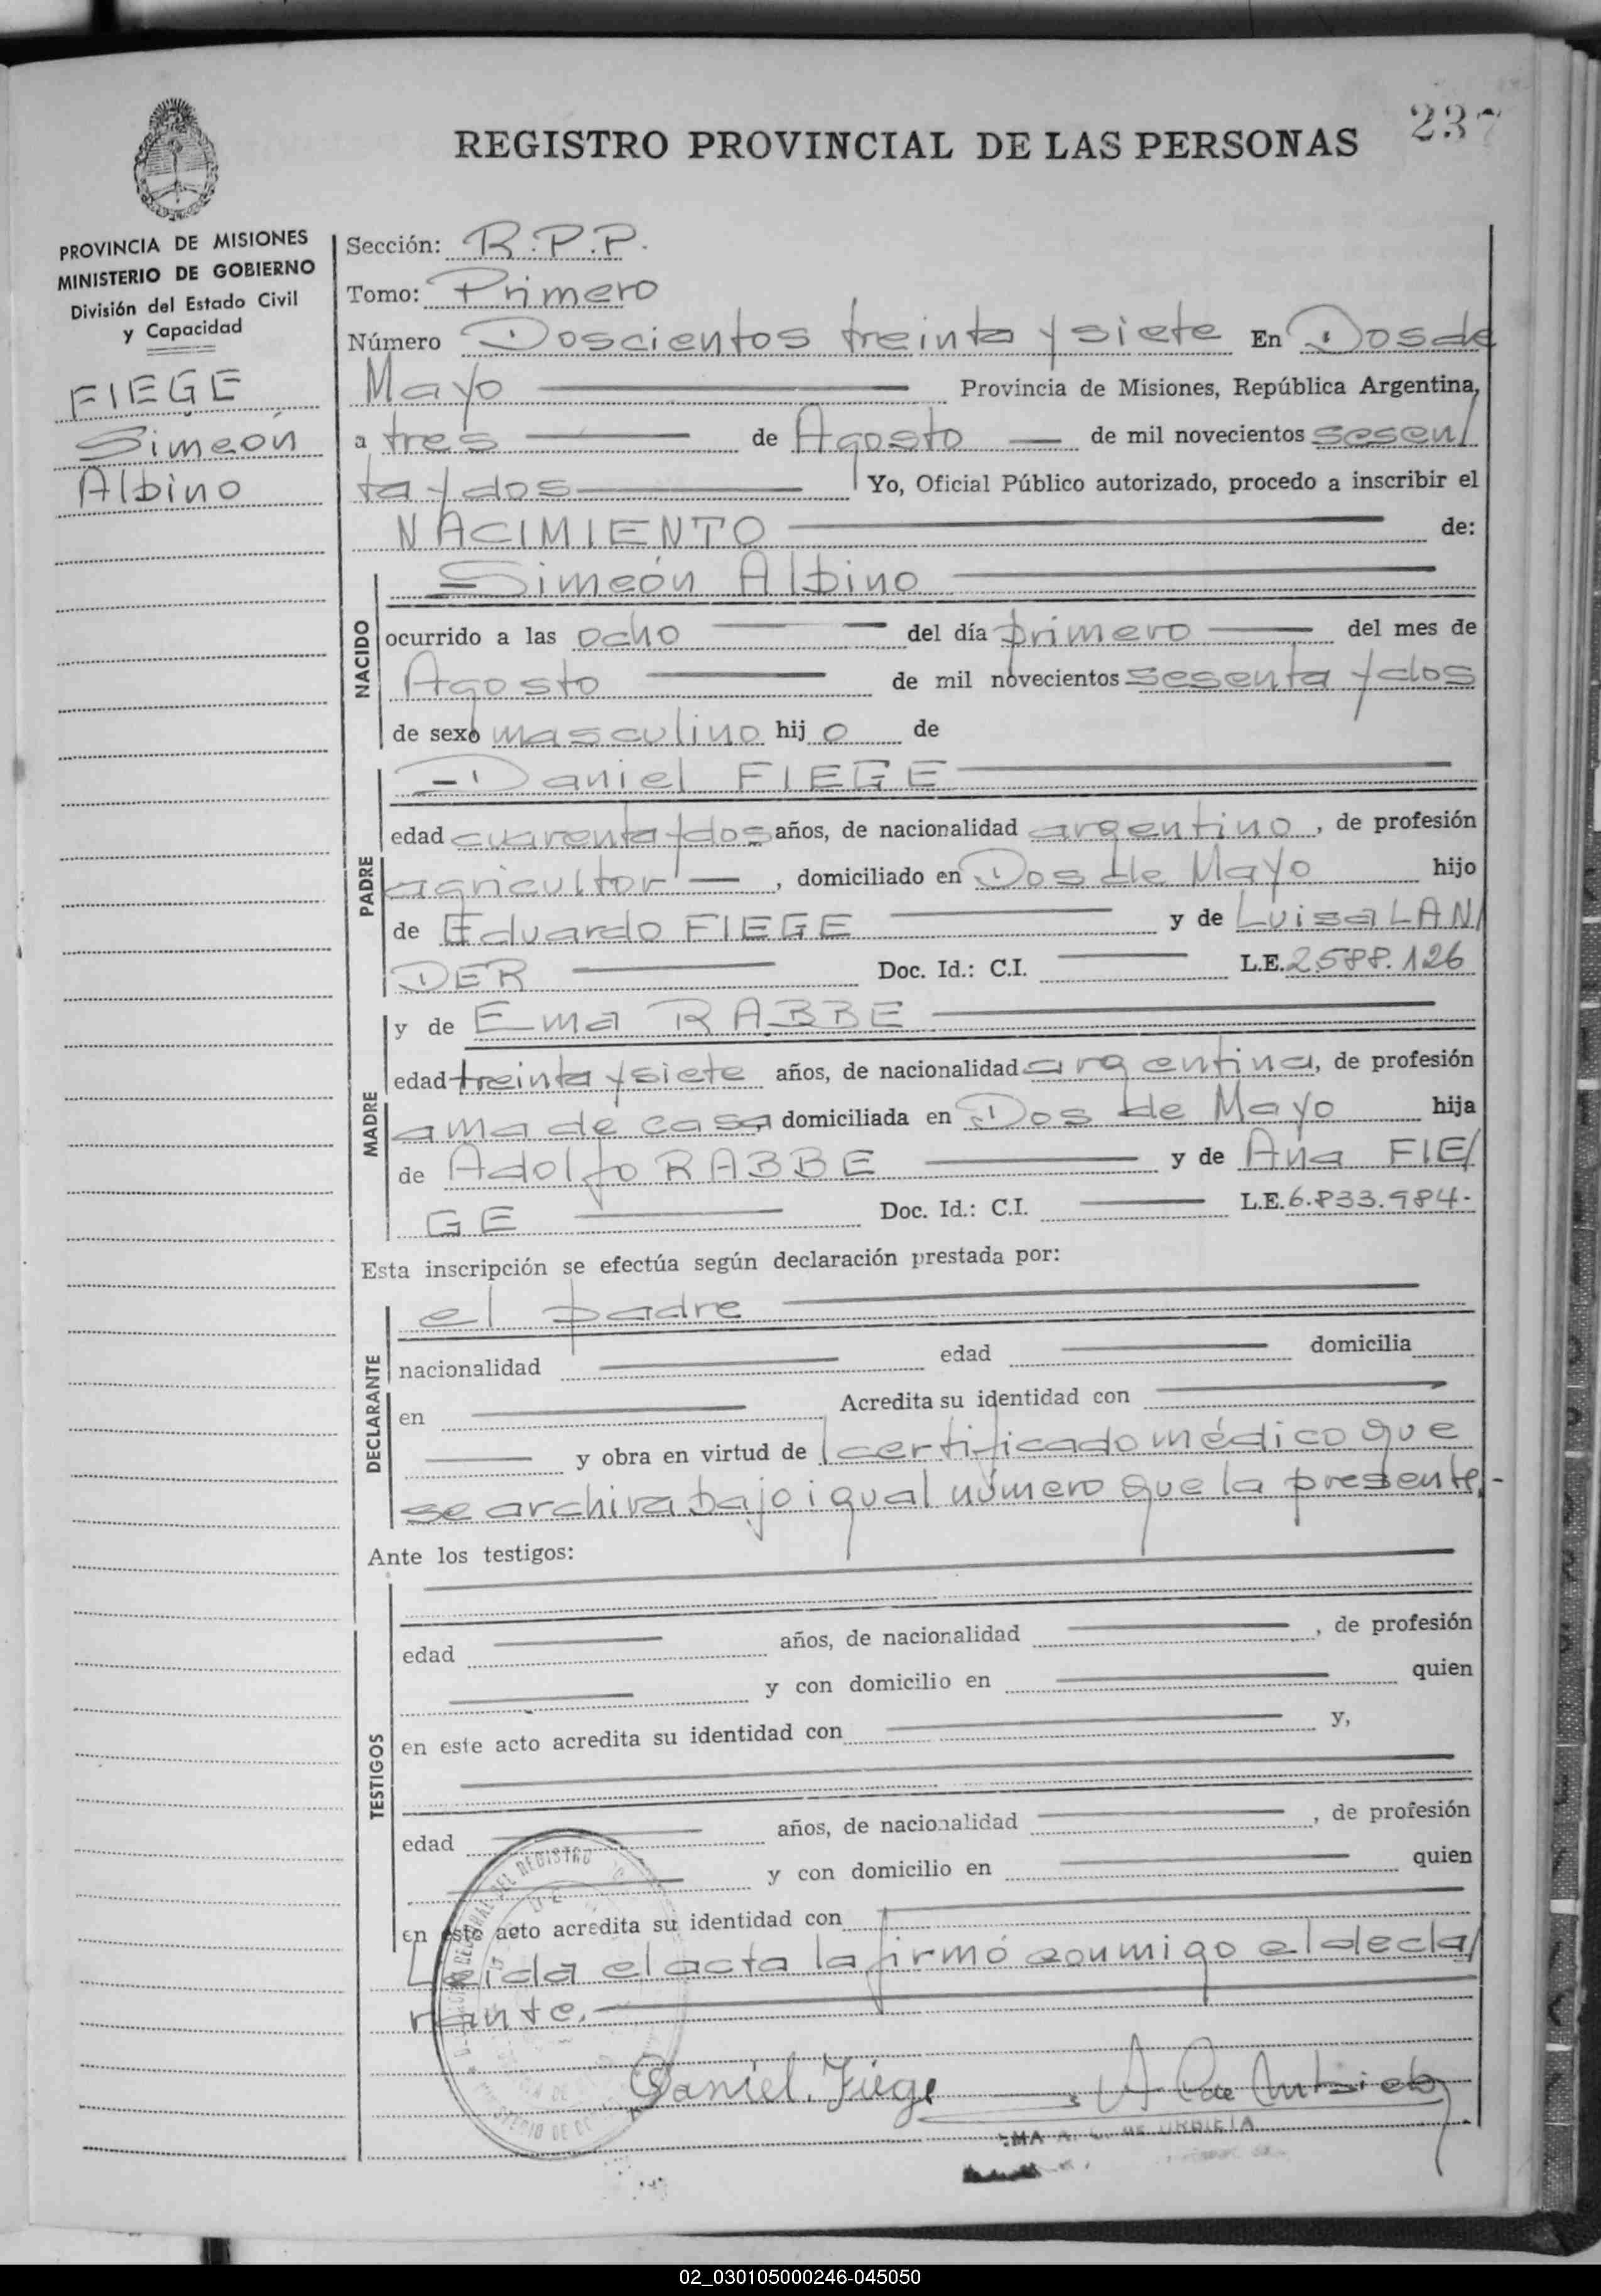 237
REGISTRO PROVINCIAL DE LAS PERSONAS
PROVINCIA DE MISIONES
MINISTERIO DE GOBIERNO
División del Estado Civil
y Capacidad
FIEGE
Simeón
Albino
Sección: R.P.P.
Tomo: Primero
Número Doscientos treinta y siete En Dos de
Mayo Provincia de Misiones, República Argentina,
a tres de Agosto de mil novecientos sesen/
ta y dos Yo, Oficial Público autorizado, procedo a inscribir el
NACIMIENTO de:
NACIDO
Simeón Albino
ocurrido a las ocho del día primero del mes de
Agosto de mil novecientos sesenta y dos
de sexo masculino hijo de
PADRE
Daniel FIEGE
edad cuarenta y dos años, de nacionalidad argentino, de profesión
agricultor, domiciliado en Dos de Mayo hijo
de Eduardo FIEGE y de Luisa LAN/
DER Doc. Id.: C.I. L.E. 2.588.126
MADRE
y de Ema RABBE
edad treinta y siete años, de nacionalidad argentina, de profesión
ama de casa, domiciliada en Dos de Mayo hija
de Adolfo RABBE y de Ana FIE/
GE Doc. Id.: C.I. L.E. 6.833.984.
Esta inscripción se efectúa según declaración prestada por:
DECLARANTE
el padre
nacionalidad edad domicilia
en Acredita su identidad con
y obra en virtud de certificado médico que
se archiva bajo igual número que la presente.-
Ante los testigos:
TESTIGOS
edad años, de nacionalidad , de profesión
y con domicilio en quien
en este acto acredita su identidad con y,
edad años, de nacionalidad , de profesión
y con domicilio en quien
en este acto acredita su identidad con
Leida el acta la firmó conmigo el decla/
rante.
Daniel. Fiege
DE URBIETA
02_030105000246-045050